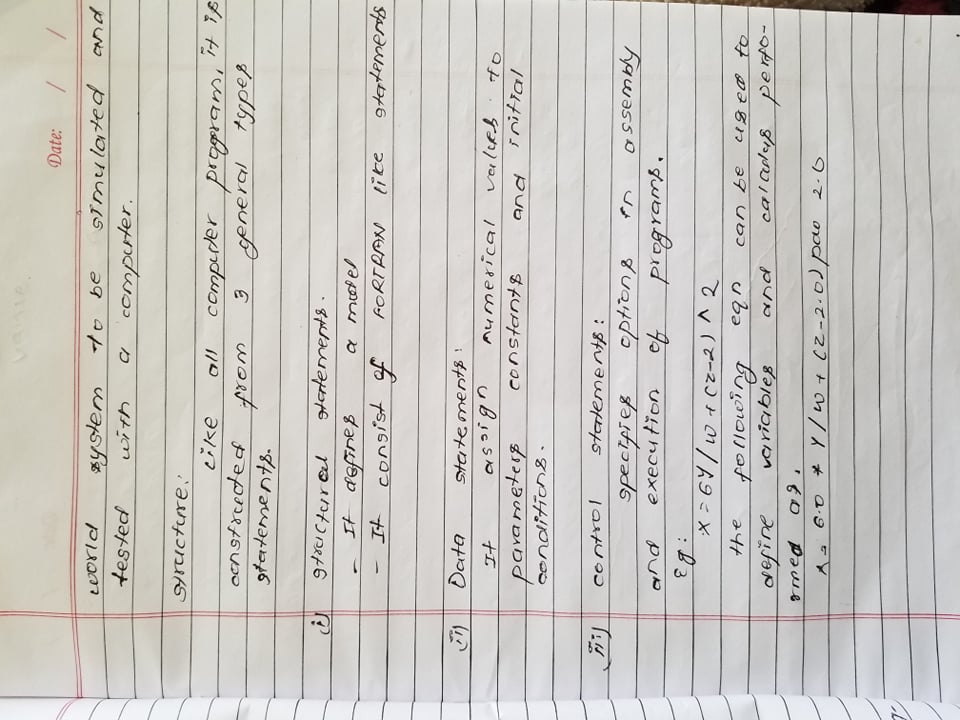 Date: / /
world system to be simulated and
tested with a computer.
structure:
Like all computer program, it is
constructed from 3 general types
statements.
i) structural statements.
- It defines a model
- It consist of FORTRAN like statements
ii) Data statements:
It assign numerical values to
parameters constants and initial
conditions.
iii) control statements:
specifies options in assembly
and execution of programs.
Eg:
X = 6Y/W + (Z-2) ^ 2
the following eqn can be used to
define variables and calculus perfo-
rmed as.
X = 6.0 * Y/W + (Z-2.0) pow 2.0